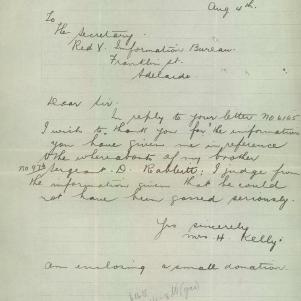 Aug 4th.
To
The Secretary.
Red X. Information Bureau.
Franklin St.
Adelaide
Dear Sir.
In reply to your letter No 6165
I wish to thank you for the information
you have given me in reference
to the whereabouts of my brother
No 973 Sergeant. D. Rabbett; I judge from
the information given that he could
not have been gassed seriously.
Yrs sincerely
Mrs H. Kelly.
am enclosing a small donation